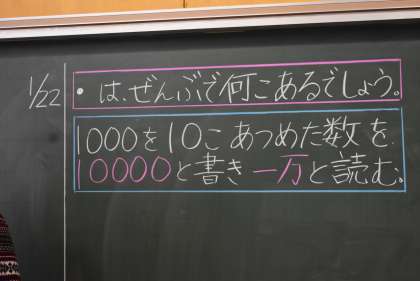 1/22
・は、ぜんぶで何こあるでしょう。
1000を10こあつめた数を
10000と書き一万と読む。